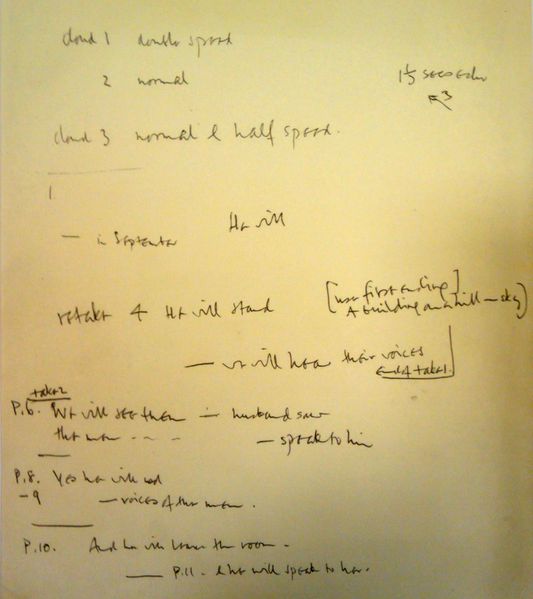 cloud 1 double speed
2 normal
1½ seconds
x3
cloud 3 normal & half speed.
1
— in September He will
retake 4 He will stand [use first ending]
A building on a hill — sky)
— we will hear their voices
end of take 1.
take 2
P.6. We will see them — husband saw
the men - - - — speak to him
P.8. Yes he will
-9 — voices of the men.
P.10. And he will leave the room -
— P.11. & he will speak to her.